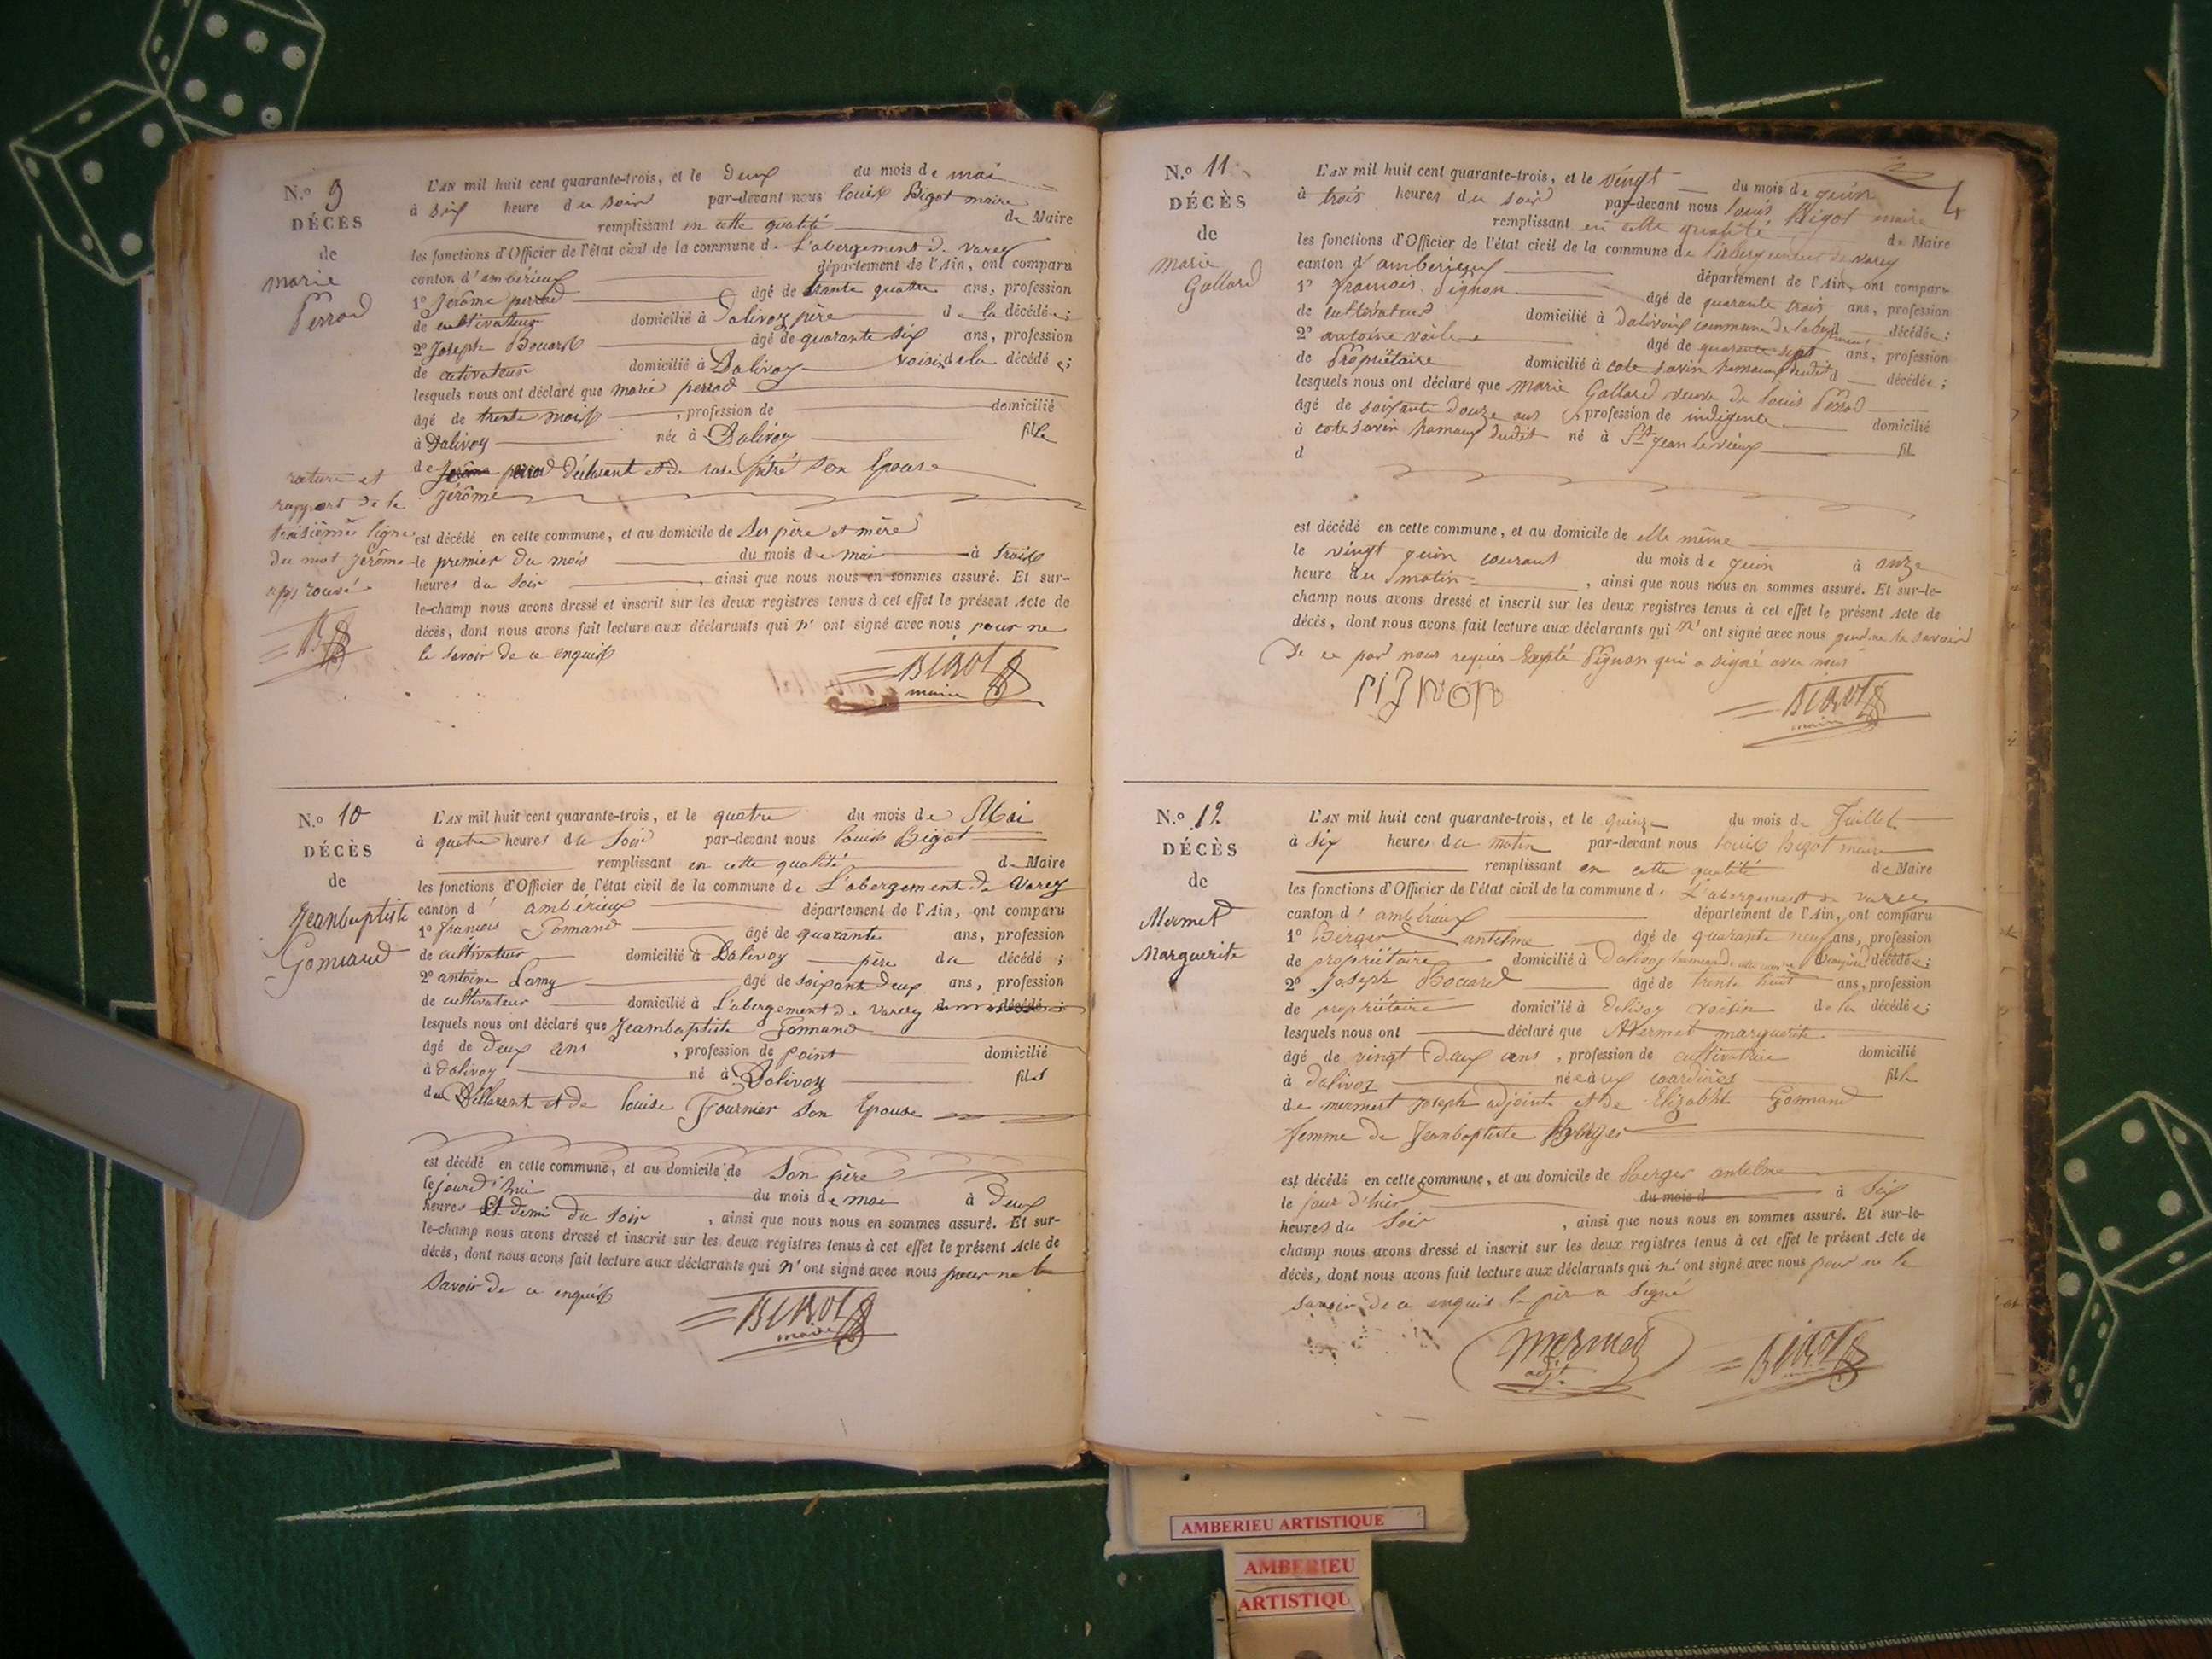 N.º 9
DÉCÈS
de
marie
Perrod
L'AN mil huit cent quarante-trois, et le deux du mois de mai
à six heure du soir par-devant nous louis Bigot maire
remplissant en cette qualité de Maire
les fonctions d'Officier de l'état civil de la commune de L'abergement de varey
canton d'ambérieux département de l'Ain, ont comparu
1º Jérôme perrod âgé de trante quatre ans, profession
de cultivateur domicilié à Dalivoy père de la décédée;
2º Joseph Bouard âgé de quarante six ans, profession
de cutivateur domicilié à Dalivoy voisin de la décédée;
lesquels nous ont déclaré que marie perrod
âgé de trente mois, profession de domicilié
à Dalivoy née à Dalivoy fille
de Jérôme perrod déclarant et de son Epouse
Jérôme
rature et
rapport de la
troisième ligne
du mot Jérôme
approuvé
est décédé en cette commune, et au domicile de ses père et mère
le premier du mois du mois de mai à trois
heures du soir, ainsi que nous nous en sommes assuré. Et sur-
le-champ nous avons dressé et inscrit sur les deux registres tenus à cet effet le présent Acte de
décès, dont nous avons fait lecture aux déclarants qui n'ont signé avec nous pour ne
le savoir de ce enquis
BIGOT
maire
N.º 10
DÉCÈS
de
Jeanbaptiste
Gomand
L'AN mil huit cent quarante-trois, et le quatre du mois de Mai
à quatre heures du soir par-devant nous louis Bigot
remplissant en cette qualité de Maire
les fonctions d'Officier de l'état civil de la commune de L'abergement de Varey
canton d'ambérieux département de l'Ain, ont comparu
1º françois Gomand âgé de quarante ans, profession
de cultivateur domicilié à Dalivoy père du décédé;
2º antoine Lamy âgé de soixante deux ans, profession
de cultivateur domicilié à L'abergement de varey décédé;
lesquels nous ont déclaré que Jeanbaptiste Gomand
âgé de deux ans, profession de point domicilié
à dalivoy né à Dalivoy fils
du Déllarant et de louise Fournier son Epouse
est décédé en cette commune, et au domicile de son père
le jourd'hui du mois de mai à deux
heures et demi du soir, ainsi que nous nous en sommes assuré. Et sur-
le-champ nous avons dressé et inscrit sur les deux registres tenus à cet effet le présent Acte de
décès, dont nous avons fait lecture aux déclarants qui n'ont signé avec nous pour ne le
savoir de ce enquis
BIGOT
maire
4
N.º 11
DÉCÈS
de
marie
Gallard
L'AN mil huit cent quarante-trois, et le vingt du mois de juin
à trois heures du soir par-devant nous louis Bigot maire
remplissant en cette qualité de Maire
les fonctions d'Officier de l'état civil de la commune de L'abergement de varey
canton d'ambérieux département de l'Ain, ont comparu
1º françois Pignon âgé de quarante trois ans, profession
de cultivateur domicilié à dalivoix commune de décédée;
2º antoine âgé de quarante sept ans, profession
de Propriétaire domicilié à cote savin hamaux dudit d décédée;
lesquels nous ont déclaré que marie Gallard veuve de louis Perrod
âgé de soixante douze ans, profession de indigente domicilié
à cote savin hamaux dudit né à St Jean le vieux fil
d
est décédé en cette commune, et au domicile de elle même
le vingt juin courant du mois de juin à onze
heure du matin, ainsi que nous nous en sommes assuré. Et sur-le-
champ nous avons dressé et inscrit sur les deux registres tenus à cet effet le présent Acte de
décès, dont nous avons fait lecture aux déclarants qui n'ont signé avec nous pour ne le savoir
De ce par nous requis Exepté Pignon qui a signé avec nous
PIGNON
BIGOT
maire
N.º 12
DÉCÈS
de
Mermet
Marguerite
L'AN mil huit cent quarante-trois, et le quinze du mois de Juillet
à six heures du matin par-devant nous louis Bigot maire
remplissant en cette qualité de Maire
les fonctions d'Officier de l'état civil de la commune de L'abergement de varey
canton d'ambérieux département de l'Ain, ont comparu
1º Berger antelme âgé de quarante neuf ans, profession
de propriétaire domicilié à Dalivoy décédée;
2º Joseph Bouard âgé de trente huit ans, profession
de propriétaire domicilié à dalivoy voisin de la décédée;
lesquels nous ont déclaré que Mermet marguerite
âgé de vingt deux ans, profession de cultivatrice domicilié
à dalivoz née à fille
de mermet joseph adjoint et de Elizabht Gomand
femme de Jeanbaptiste Berger
est décédé en cette commune, et au domicile de berger antelme
le jour d'hier du mois d à six
heures du soir, ainsi que nous nous en sommes assuré. Et sur-le-
champ nous avons dressé et inscrit sur les deux registres tenus à cet effet le présent Acte de
décès, dont nous avons fait lecture aux déclarants qui n'ont signé avec nous pour ne le
savoir de ce enquis le père a signé
mermet
adjt
BIGOT
AMBERIEU ARTISTIQUE
AMBERIEU
ARTISTIQU